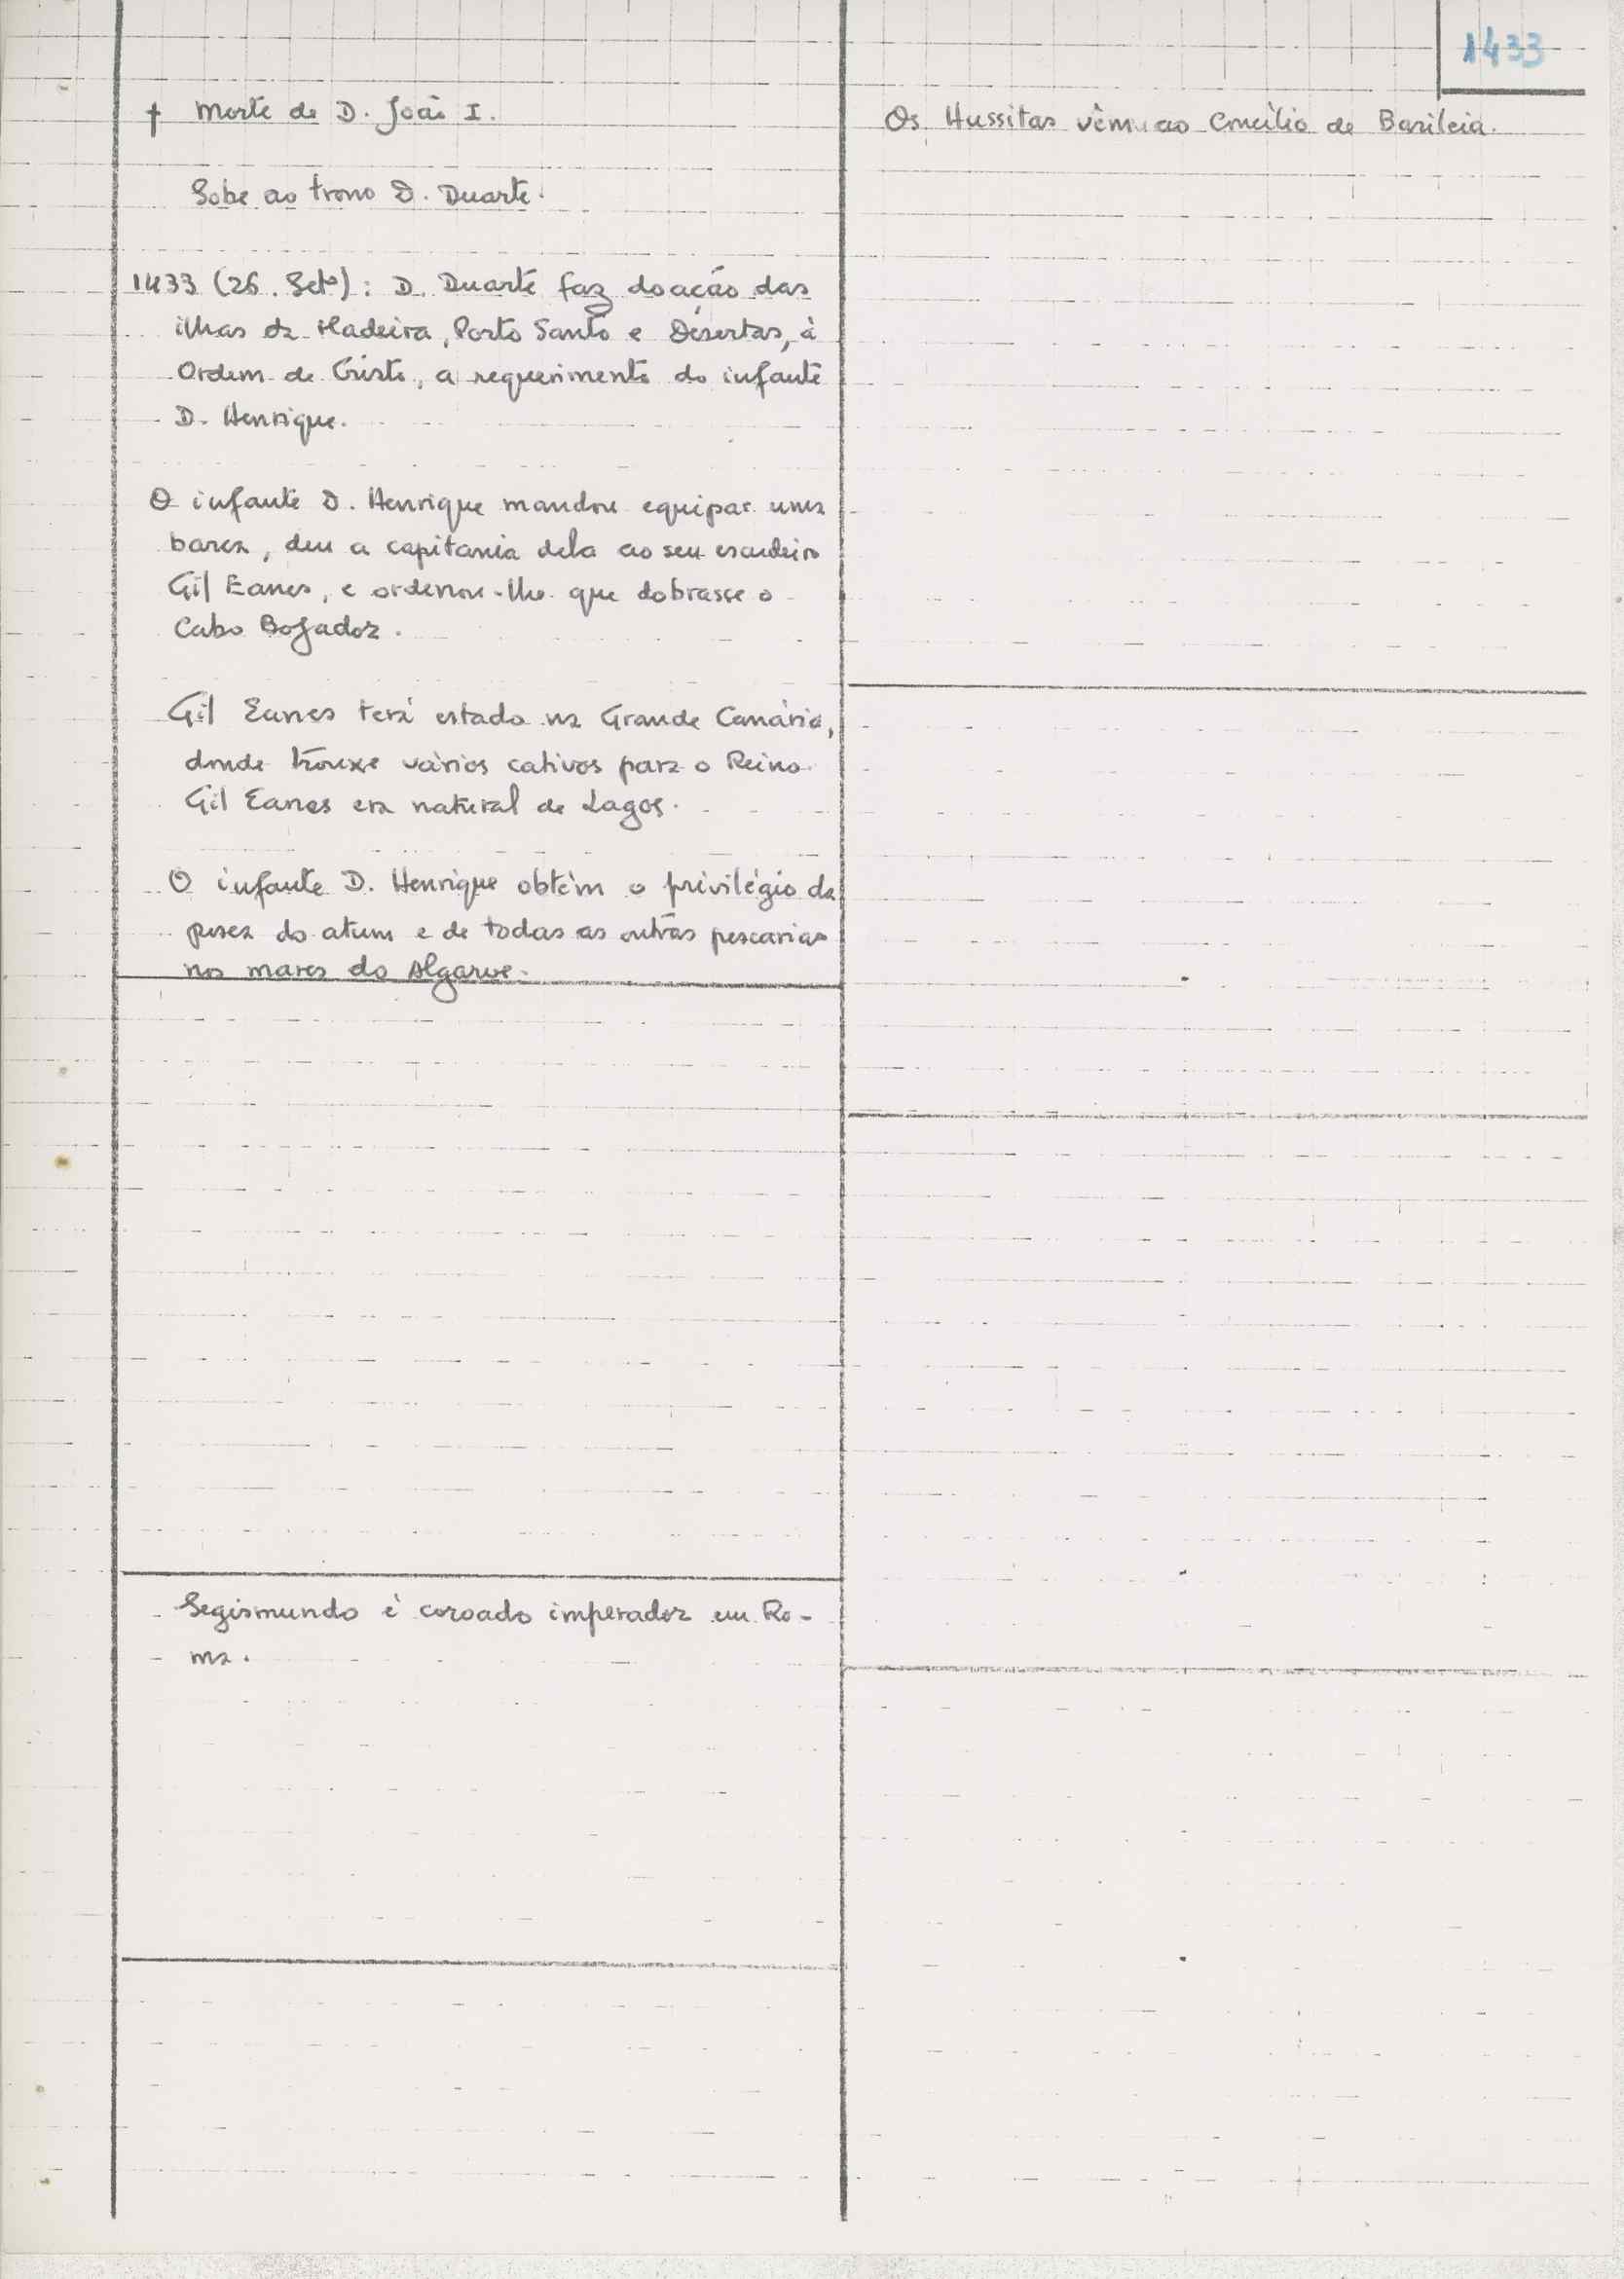 1433
† Morte de D. João I.
Sobe ao trono D. Duarte.
1433 (26. Setº): D. Duarte faz doação das
ilhas da Madeira, Porto Santo e Desertas, à
Ordem de Cristo, a requerimento do infante
D. Henrique.
O infante D. Henrique mandou equipar uma
barca, deu a capitania dela ao seu escudeiro
Gil Eanes, e ordenou-lhe que dobrasse o
Cabo Bojador.
Gil Eanes terá estado na Grande Canária,
donde trouxe vários cativos para o Reino.
Gil Eanes era natural de Lagos.
O infante D. Henrique obtém o privilégio da
pesca do atum e de todas as outras pescarias
nos mares do Algarve.
Segismundo é coroado imperador em Ro-
ma.
Os Hussitas vêm ao Concílio de Basileia.